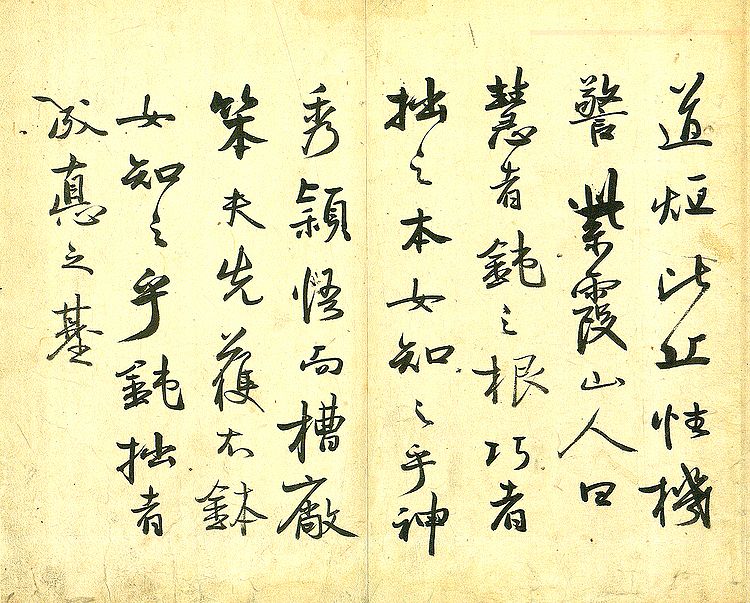 道烜比丘性機
警紫霞山人曰
慧者鈍之根巧者
拙之本女知之乎神
秀穎悟而槽廠
笨夫先獲衣鉢
女知之乎鈍拙者
成真之基